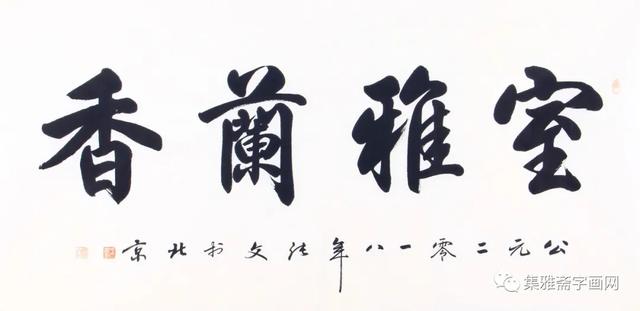 室雅蘭香
公元二零一八年文书北京
集雅斋字画网